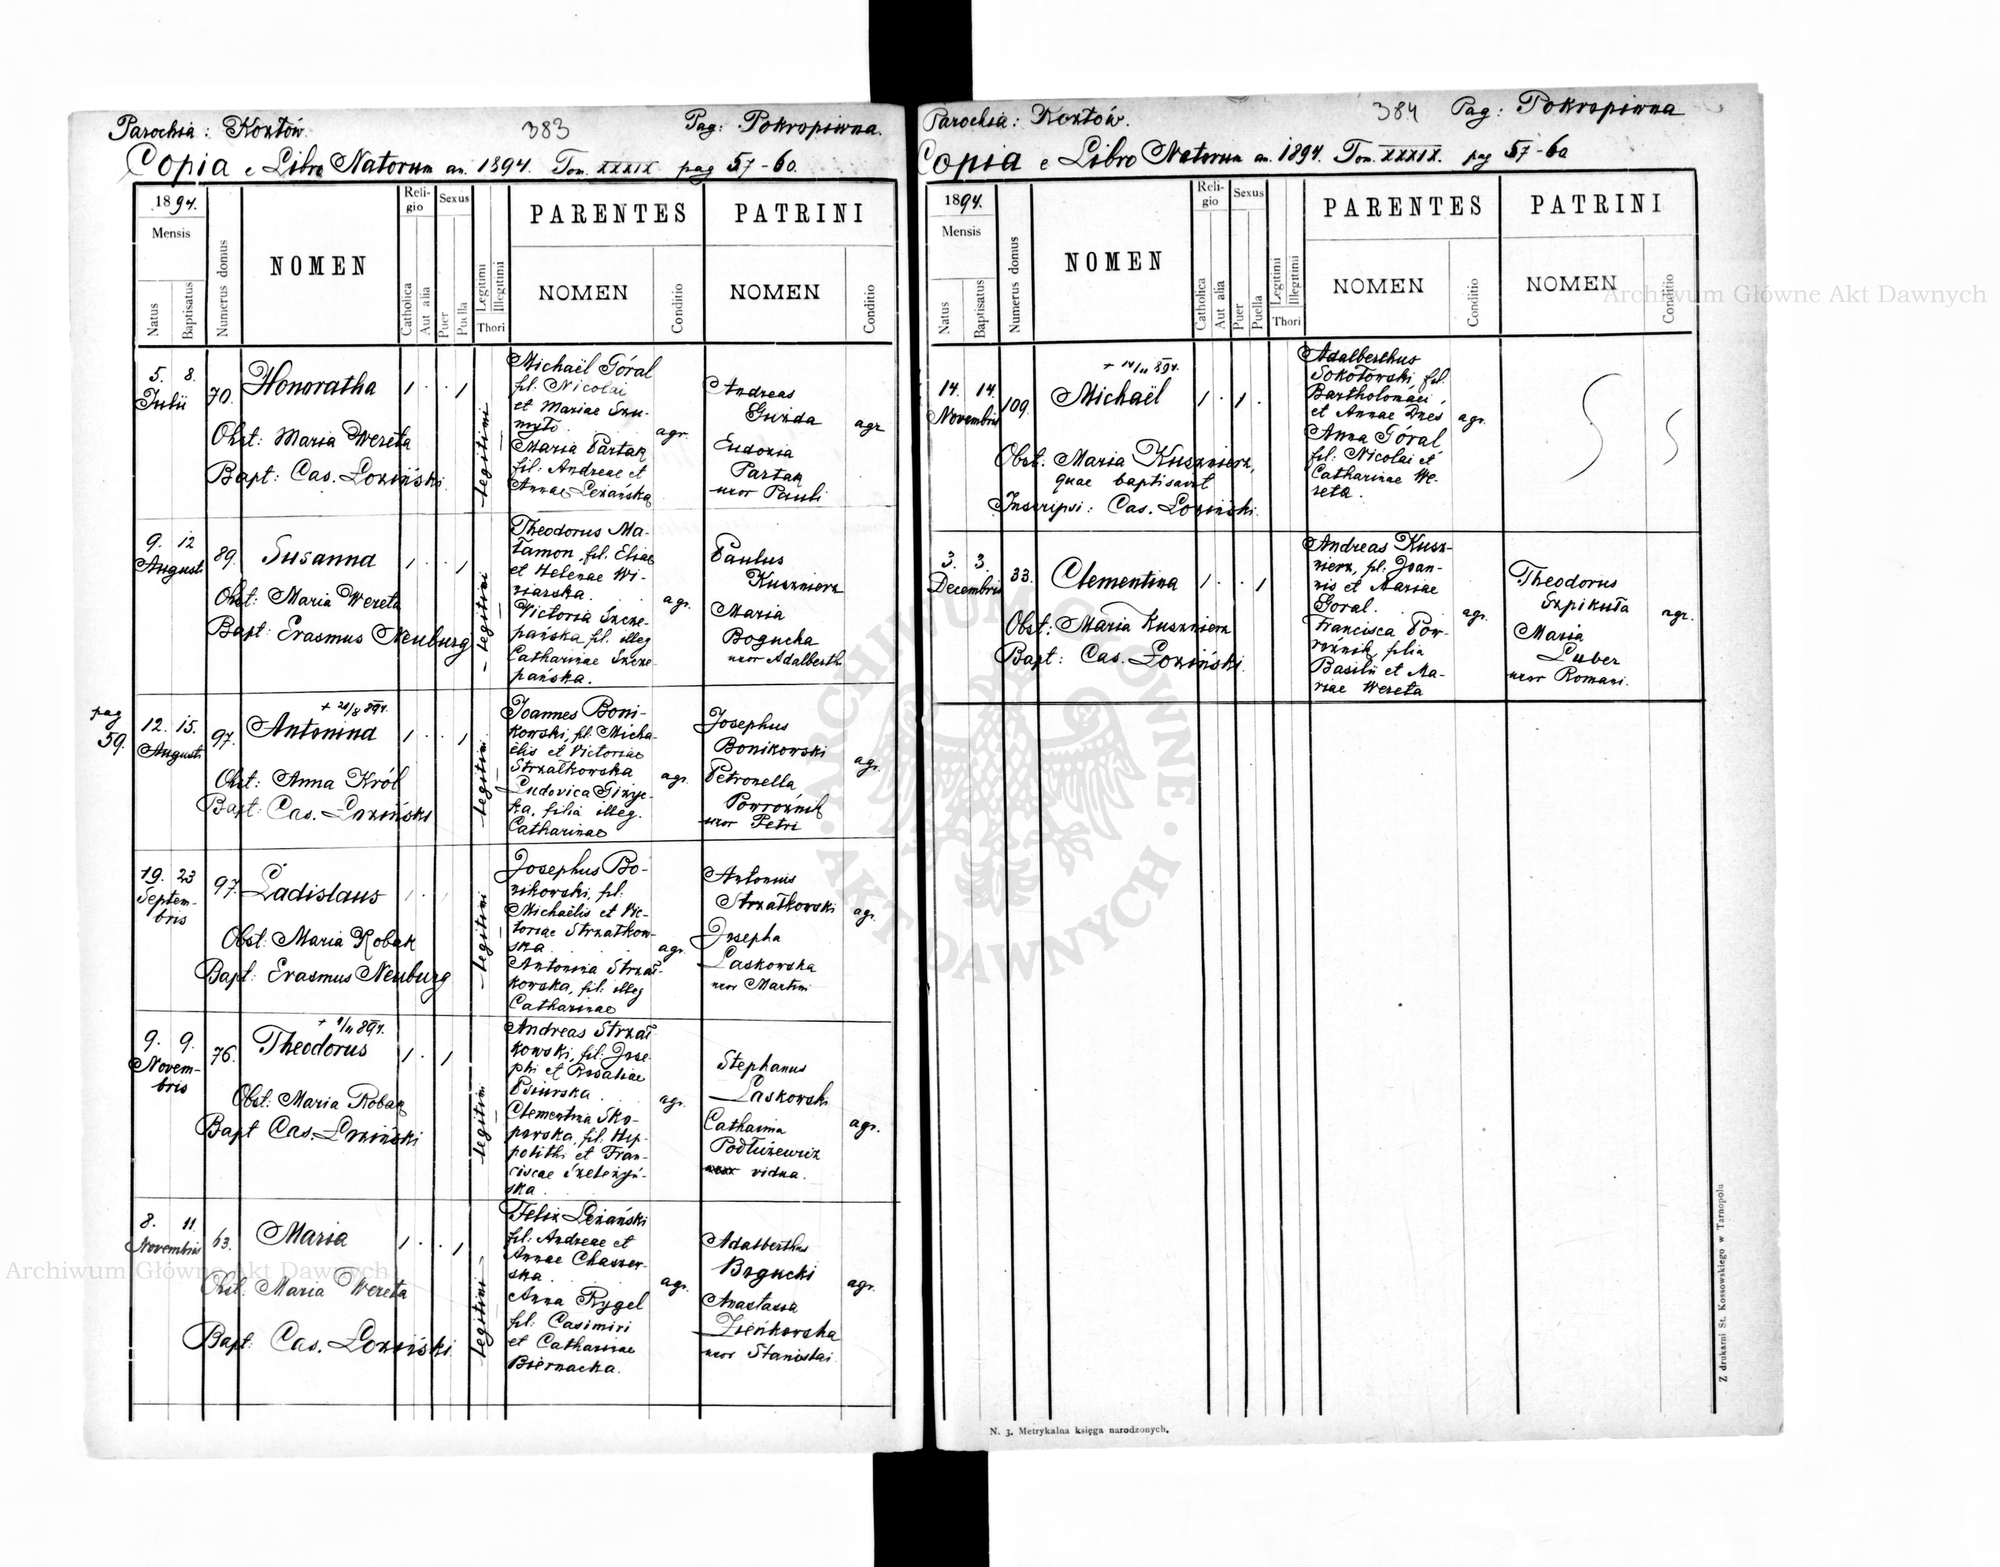 Parochia: Kozłów. 383 Pag: Pokropiwna.
Copia e Libro Natorum an. 1894. Tom. XXXIX pag 57-60.
1894.
Mensis
Natus
Baptisatus
Numerus domus
NOMEN
Religio
Catholica
Aut alia
Sexus
Puer
Puella
Legitimi
Illegitimi
Thori
PARENTES
NOMEN
Conditio
PATRINI
NOMEN
Conditio
5. 8.
Julii
70.
Honoratha
1 . . 1
Obst: Maria Wereta
Bapt: Cas. Łoziński.
legitimi
Michaël Góral
fil. Nicolai
et Mariae
Maria Partak
fil: Andreae et
Annae Leżańska
agr.
Andreas
Guzda
Eudoxia
Partak
uxor Pauli
agr
9. 12
Augusti
89.
Susanna
1 . . 1
Obst: Maria Wereta
Bapt: Erasmus Neuburg
legitimi
Theodorus Ma-
łamon, fil. Eliae
et Helenae Wi-
niarska.
Victoria Szcze-
pańska, fil. illeg
Catharinae Szcze-
pańska.
agr.
Paulus
Kusznierz
Maria
Bogucka
uxor Adalberth
pag
59.
12. 15.
Augusti
97.
+ 21/8 894.
Antonina
1 . . 1
Obst: Anna Król
Bapt: Cas. Łoziński
legitimi
Joannes Boni-
kowski, fil. Micha-
ëlis et Victoriae
Strzałkowska
Ludovica Giżyc-
ka, filia illeg.
Catharinae
agr.
Josephus
Bonikowski
Petronella
Powroźnik
uxor Petri
agr.
19. 23
Septem-
bris
97.
Ladislaus
Obst: Maria Robak
Bapt: Erasmus Neuburg
legitimi
Josephus Bo-
nikowski, fil.
Michaëlis et Vic-
toriae Strzałkow-
ska
Antonina Strzał-
kowska, fil: illeg
Catharinae
agr.
Antonius
Strzałkowski
Josepha
Laskowska
uxor Martini
agr.
9. 9.
Novem-
bris
76.
Theodorus
1 . 1
Obst: Maria Robak
Bapt Cas. Łoziński
legitimi
Andreas Strzał
kowski, fil: Jose-
phi et Rosaliae
Psiurska.
Clementina Sko-
porska, fil: Hip-
polithi et Fran-
ciscae
ska.
agr.
Stephanus
Laskowski
Catharina
Podłużewicz
vidua.
agr.
8. 11
Novembris
63.
Maria
1 . . 1
Obst. Maria Wereta
Bapt: Cas. Łoziński
legitimi
Felix Leżański
fil: Andreae et
Annae
ska.
Anna Rygel
fil: Casimiri
et Catharinae
Biernacka.
agr.
Adalberthus
Bogucki
Anastasia
Zieńkowska
uxor Stanislai
agr.
Parochia: Kozłów. 384 Pag: Pokropiwna
Copia e Libro Natorum an. 1894. Tom. XXXIX. pag 57-60
1894.
Mensis
Natus
Baptisatus
Numerus domus
NOMEN
Religio
Catholica
Aut alia
Sexus
Puer
Puella
Legitimi
Illegitimi
Thori
PARENTES
NOMEN
Conditio
PATRINI
NOMEN
Conditio
14. 14.
Novembris
109.
+ 14/11 894.
Michaël
1 . 1 .
Obst: Maria Kusznierz,
quae baptisavit
Inscripsi: Cas. Łoziński.
Adalberthus
Sokołowski, fil.
Bartholomaei,
et Annae
Anna Góral
fil: Nicolai et
Catharinae We-
reta.
agr.
3. 3.
Decembris
33.
Clementina
1 . . 1
Obst: Maria Kusznierz
Bapt: Cas. Łoziński.
Andreas Kusz-
nierz, fil: Joan-
nis et Mariae
Goral.
Francisca Pow-
roźnik, filia
Basilii et Ma-
riae Wereta
agr.
Theodorus
Szpikuła
Maria
Luber
uxor Romani.
agr.
Z drukarni St. Kossowskiego w Tarnopolu
N. 3. Metrykalna księga narodzonych.
Archiwum Główne Akt Dawnych
Archiwum Główne Akt Dawnych
ARCHIWUM GŁÓWNE
AKT DAWNYCH